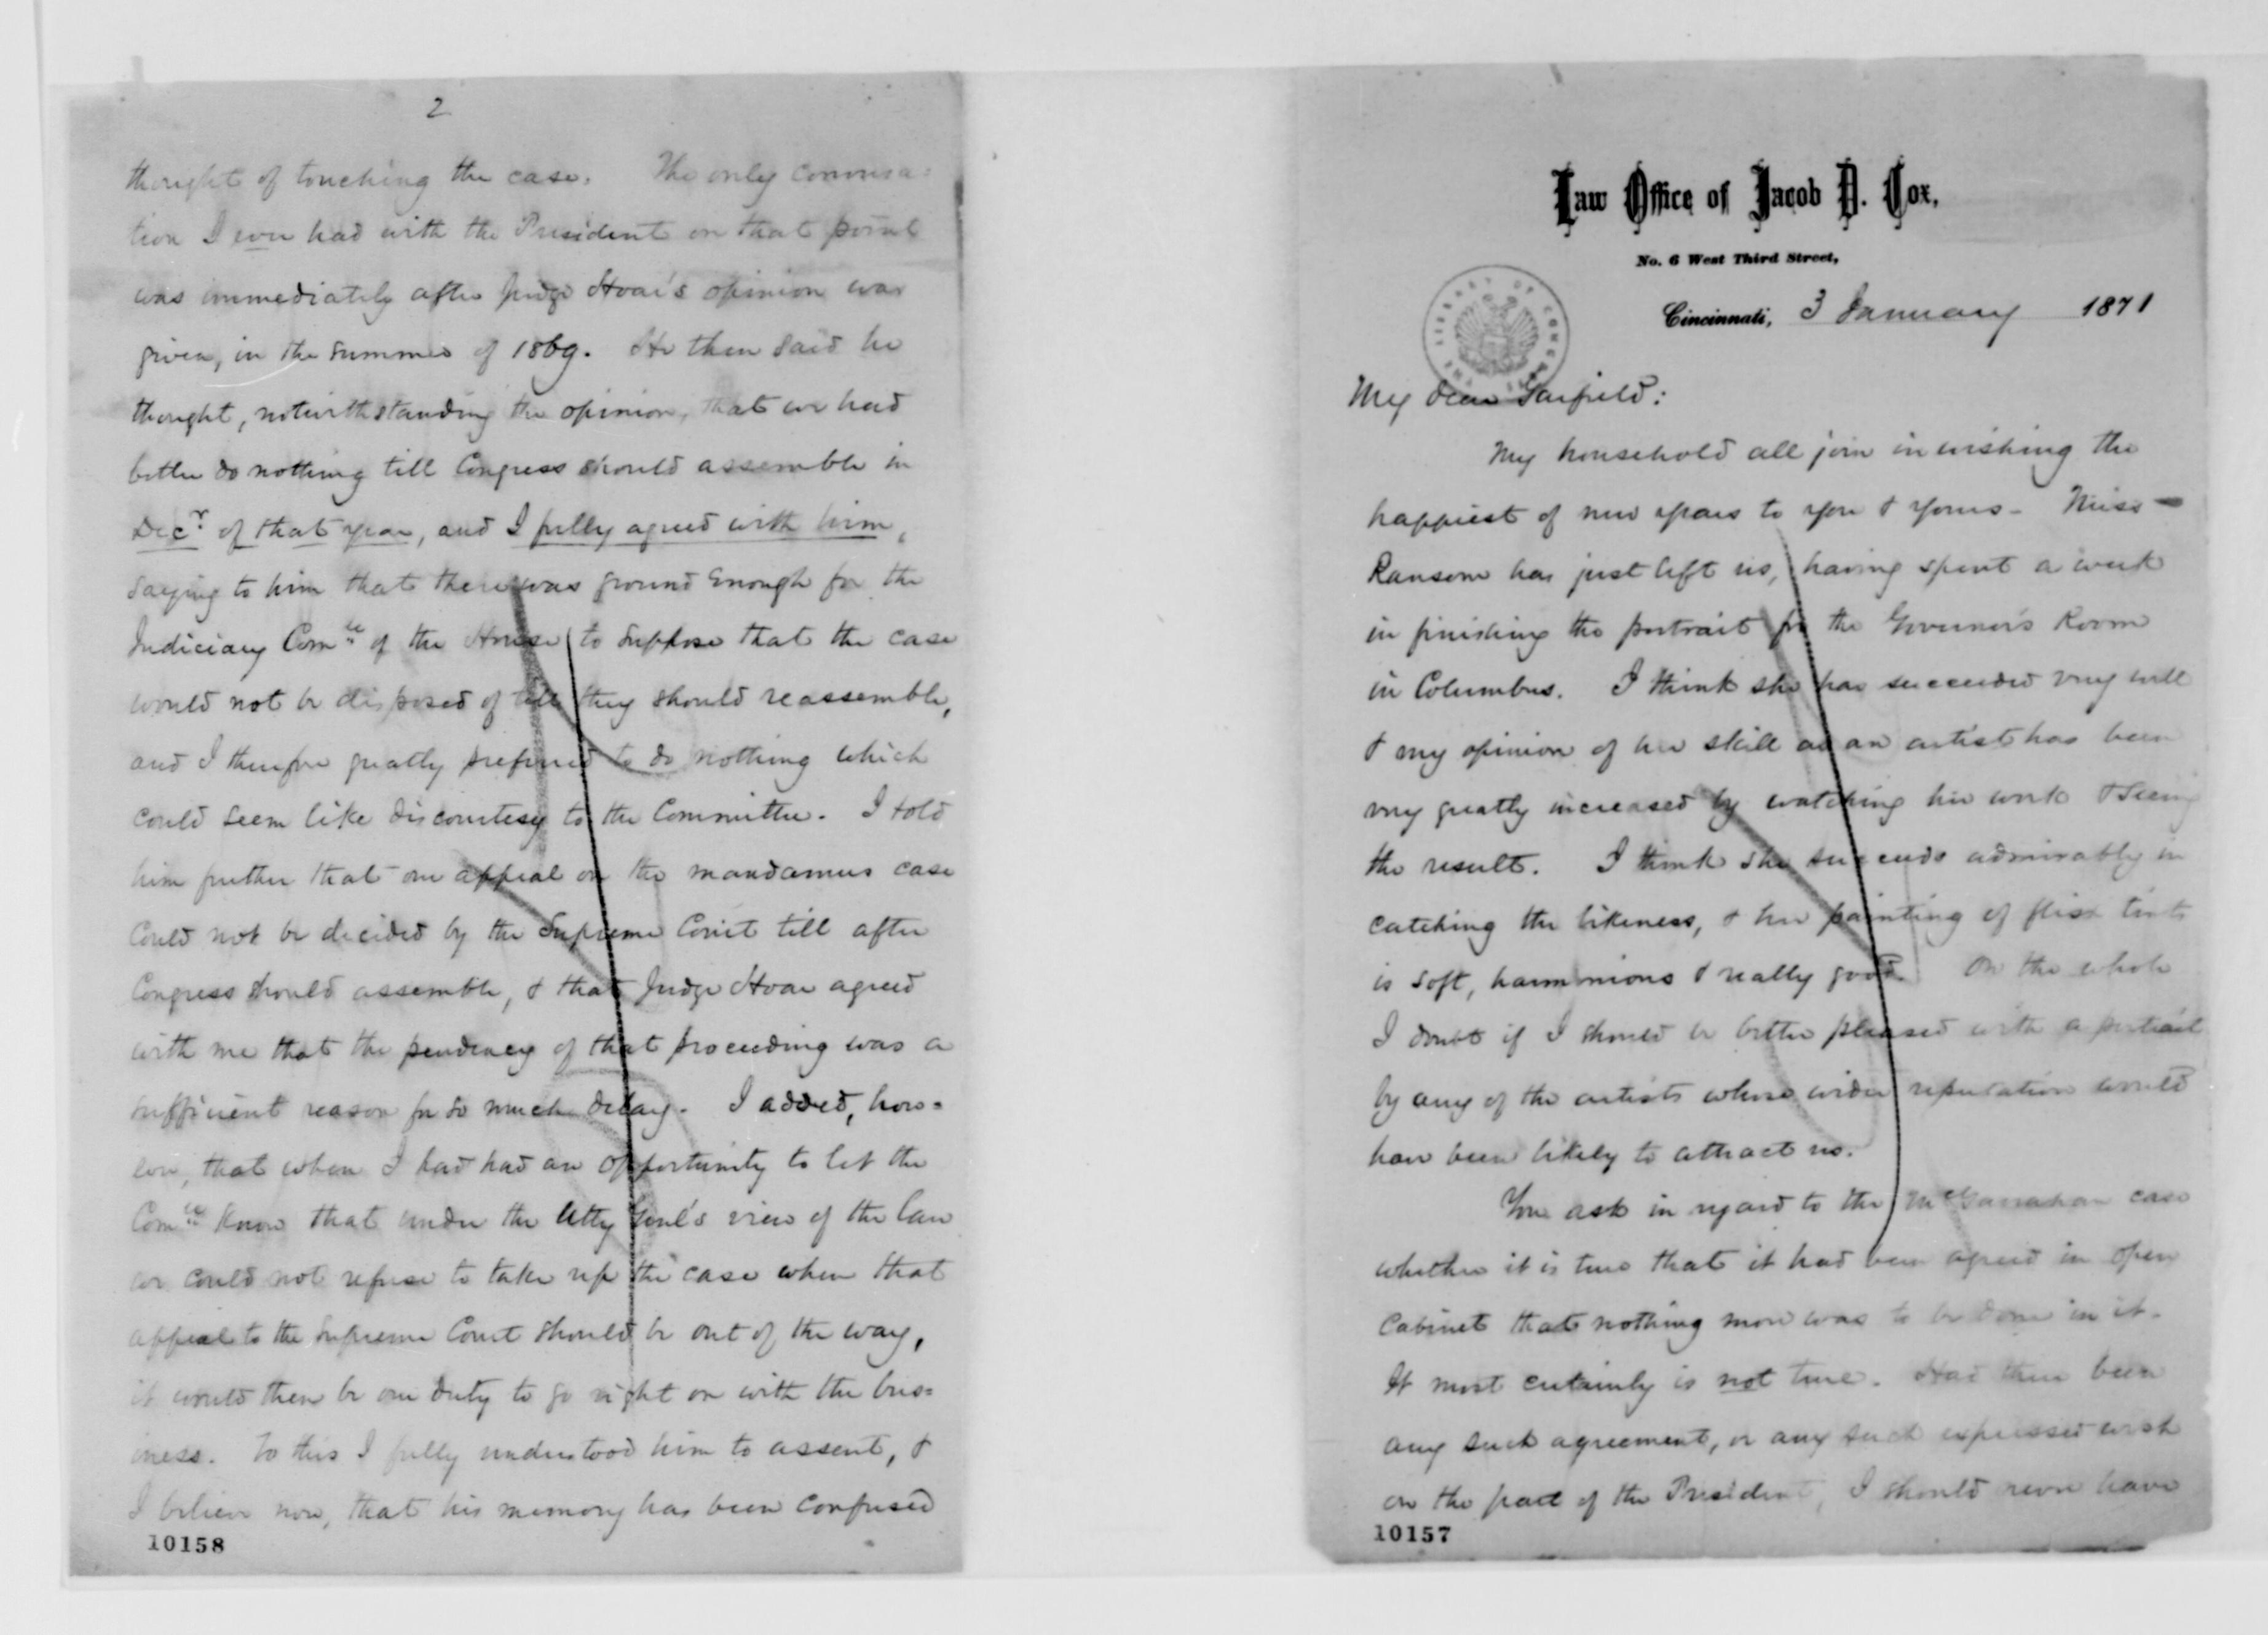 Law Office of Jacob D. Cox,
No. 6 West Third Street,
Cincinnati, 3 January 1871
My dear Garfield:
My household all join in wishing the
happiest of new years to you & yours – Miss
Ransom has just left us, having spent a week
in finishing the portrait for the Governor's Room
in Columbus. I think she has succeeded very well
& my opinion of her skill as an artist has been
very greatly increased by watching her work & seeing
the result. I think she succeeds admirably in
catching the likeness, & her painting of flesh tints
is soft, harmonious & really good. On the whole
I doubt if I should be better pleased with a portrait
by any of the artists whose wider reputation would
have been likely to attract us.
You ask in regard to the McGarrahan case
whether it is true that it had been agreed in open
Cabinet that nothing more was to be done in it.
It most certainly is not true. Had there been
any such agreement, or any such expressed wish
on the part of the President, I should never have
10157
2
thought of touching the case. The only conversa=
tion I ever had with the President on that point
was immediately after Judge Hoar's opinion was
given, in the summer of 1869. He then said he
thought, notwithstanding the opinion, that we had
better do nothing till Congress should assemble in
Decr. of that year, and I fully agreed with him,
saying to him that there was ground enough for the
Judiciary Comtee of the House to suppose that the case
would not be disposed of till they should reassemble,
and I therefore greatly preferred to do nothing which
could seem like discourtesy to the Committee. I told
him further that our appeal on the mandamus case
could not be decided by the Supreme Court till after
Congress should assemble, & that Judge Hoar agreed
with me that the pendency of that proceeding was a
sufficient reason for so much delay. I added, how=
ever, that when I had had an opportunity to let the
Comtee know that under the Atty Genl's view of the law
we could not refuse to take up the case when that
appeal to the Supreme Court should be out of the way,
it would then be our duty to go right on with the bus=
iness. To this I fully understood him to assent, &
I believe now, that his memory has been confused
10158